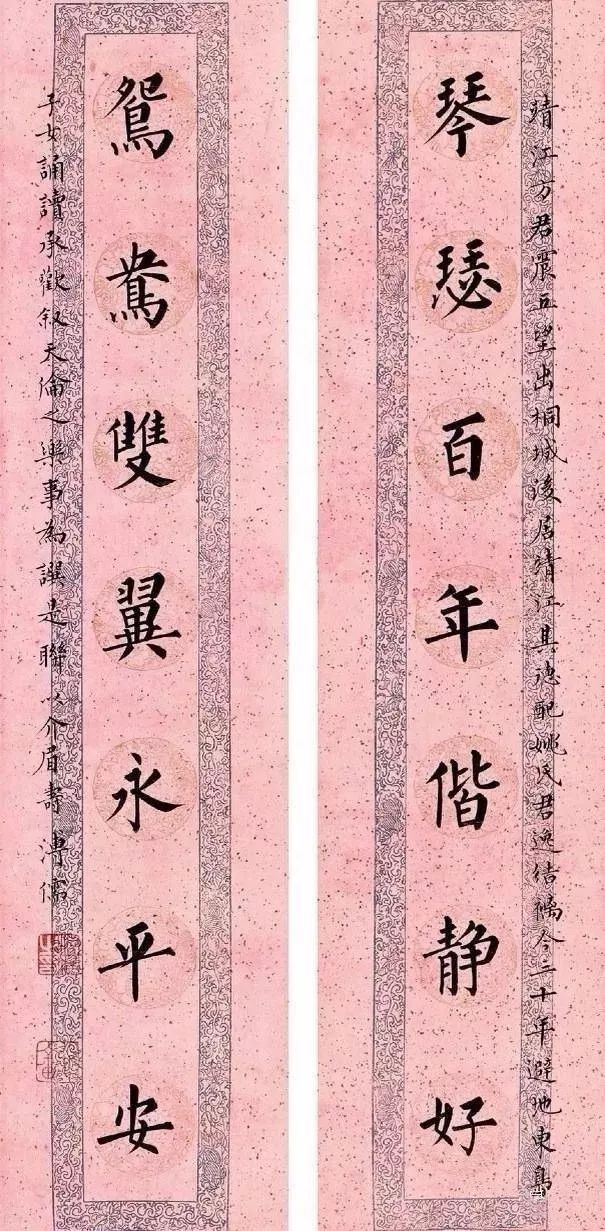 靖江方君震五望出桐城後居清江其德配姚氏君逸结縭今三十年避地東島
琴瑟百年偕静好
鴛鴦雙翼永平安
子女誦讀承歡叙天倫之樂事為譔是聯以介眉壽 溥儒